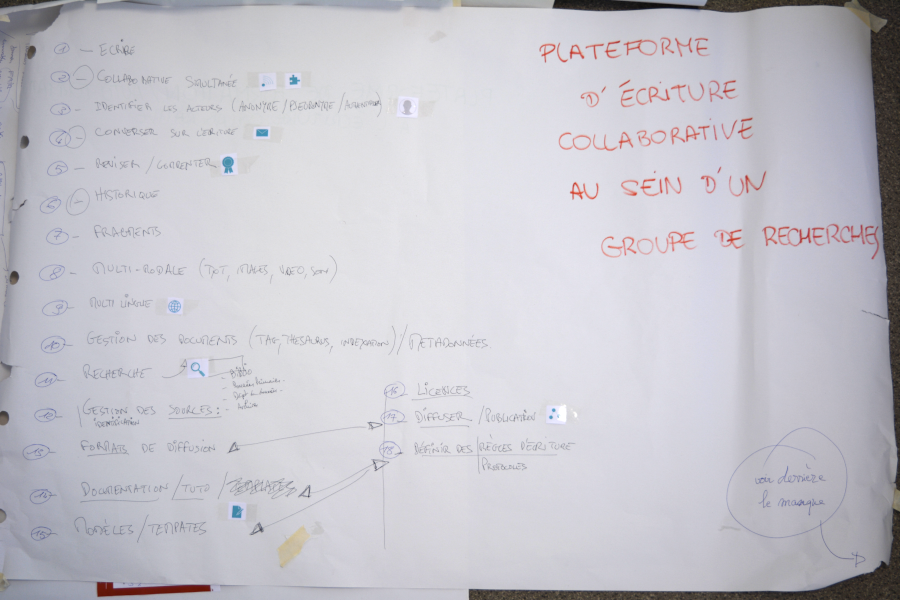 PLATEFORME
D'ÉCRITURE
COLLABORATIVE
AU SEIN D'UN
GROUPE DE RECHERCHES
1 - ECRIRE
2 - COLLABORATIVE SIMULTANÉE
3 - IDENTIFIER LES ACTEURS (ANONYME /
4 - CONVERSER SUR L'ECRITURE
5 - REVISER / COMMENTER
6 - HISTORIQUE
7 - FRAGMENTS
8 - MULTI-MODALE (TXT, IMAGES, VIDEO, SON)
9 - MULTI LINGUE
10 - GESTION DES DOCUMENTS (TAG, THESAURUS, INDEXATION) / METADONNÉES
11 - RECHERCHE
12 - GESTION DES SOURCES :
identification
13 - FORMATS DE DIFFUSION
14 - DOCUMENTATION / TUTO / TEMPLATES
15 - MODÈLES / TEMPATES
16 - LICENCES
17 - DIFFUSER / PUBLICATION
18 - DÉFINIR DES RÈGLES D'ÉCRITURE
PROTOCOLES
voir derrière
le manque